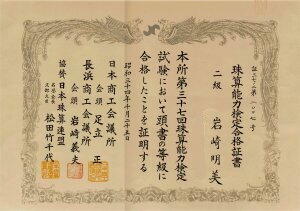 珠算能力検定合格証書
二級 岩崎明美
本所第三十七回珠算能力検定
試験において頭書の等級に
合格したことを証明する
昭和三十四年十月二十五日
日本商工会議所
会頭 足立正
長浜商工会議所
会頭 岩崎義夫
協賛 日本珠算連盟
名誉会長
文部大臣 松田竹千代